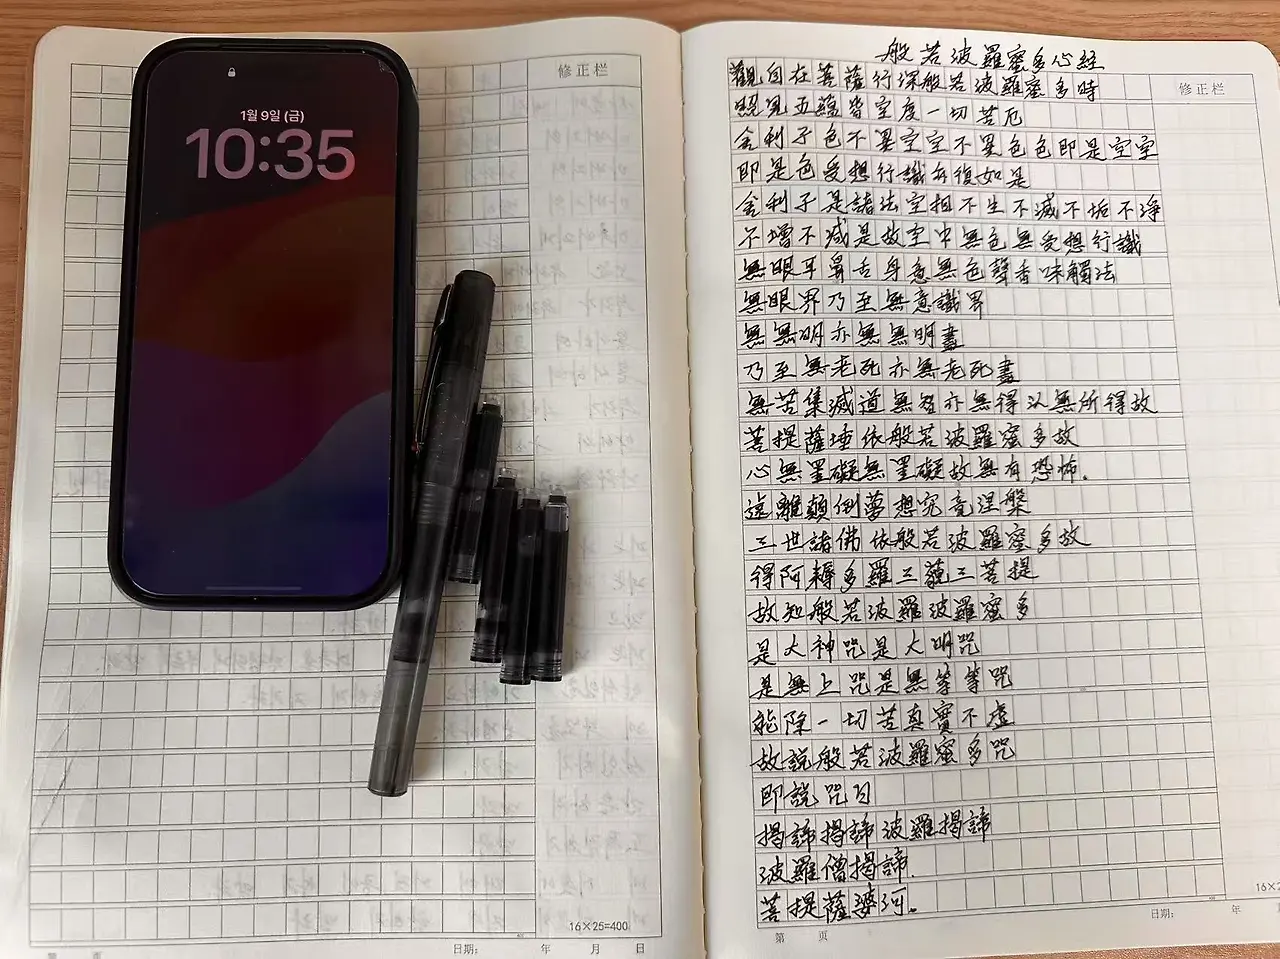 1월 9일 (금)
10:35
修正栏
16×25=400
日期: 年 月 日
般若波羅蜜多心經
修正栏
觀自在菩薩行深般若波羅蜜多時
照見五蘊皆空度一切苦厄
舍利子色不異空空不異色色即是空空
即是色受想行識亦復如是
舍利子是諸法空相不生不滅不垢不淨
不增不減是故空中無色無受想行識
無眼耳鼻舌身意無色聲香味觸法
無眼界乃至無意識界
無無明亦無無明盡
乃至無老死亦無老死盡
無苦集滅道無智亦無得以無所得故
菩提薩埵依般若波羅蜜多故
心無罣礙無罣礙故無有恐怖.
遠離顛倒夢想究竟涅槃
三世諸佛依般若波羅蜜多故
得阿耨多羅三藐三菩提
故知般若波羅波羅蜜多
是大神咒是大明咒
是無上咒是無等等咒
能除一切苦真實不虛
故說般若波羅蜜多咒
即說咒曰
揭諦揭諦波羅揭諦
波羅僧揭諦.
菩提薩婆河.
16×2
第 页
日期: 年